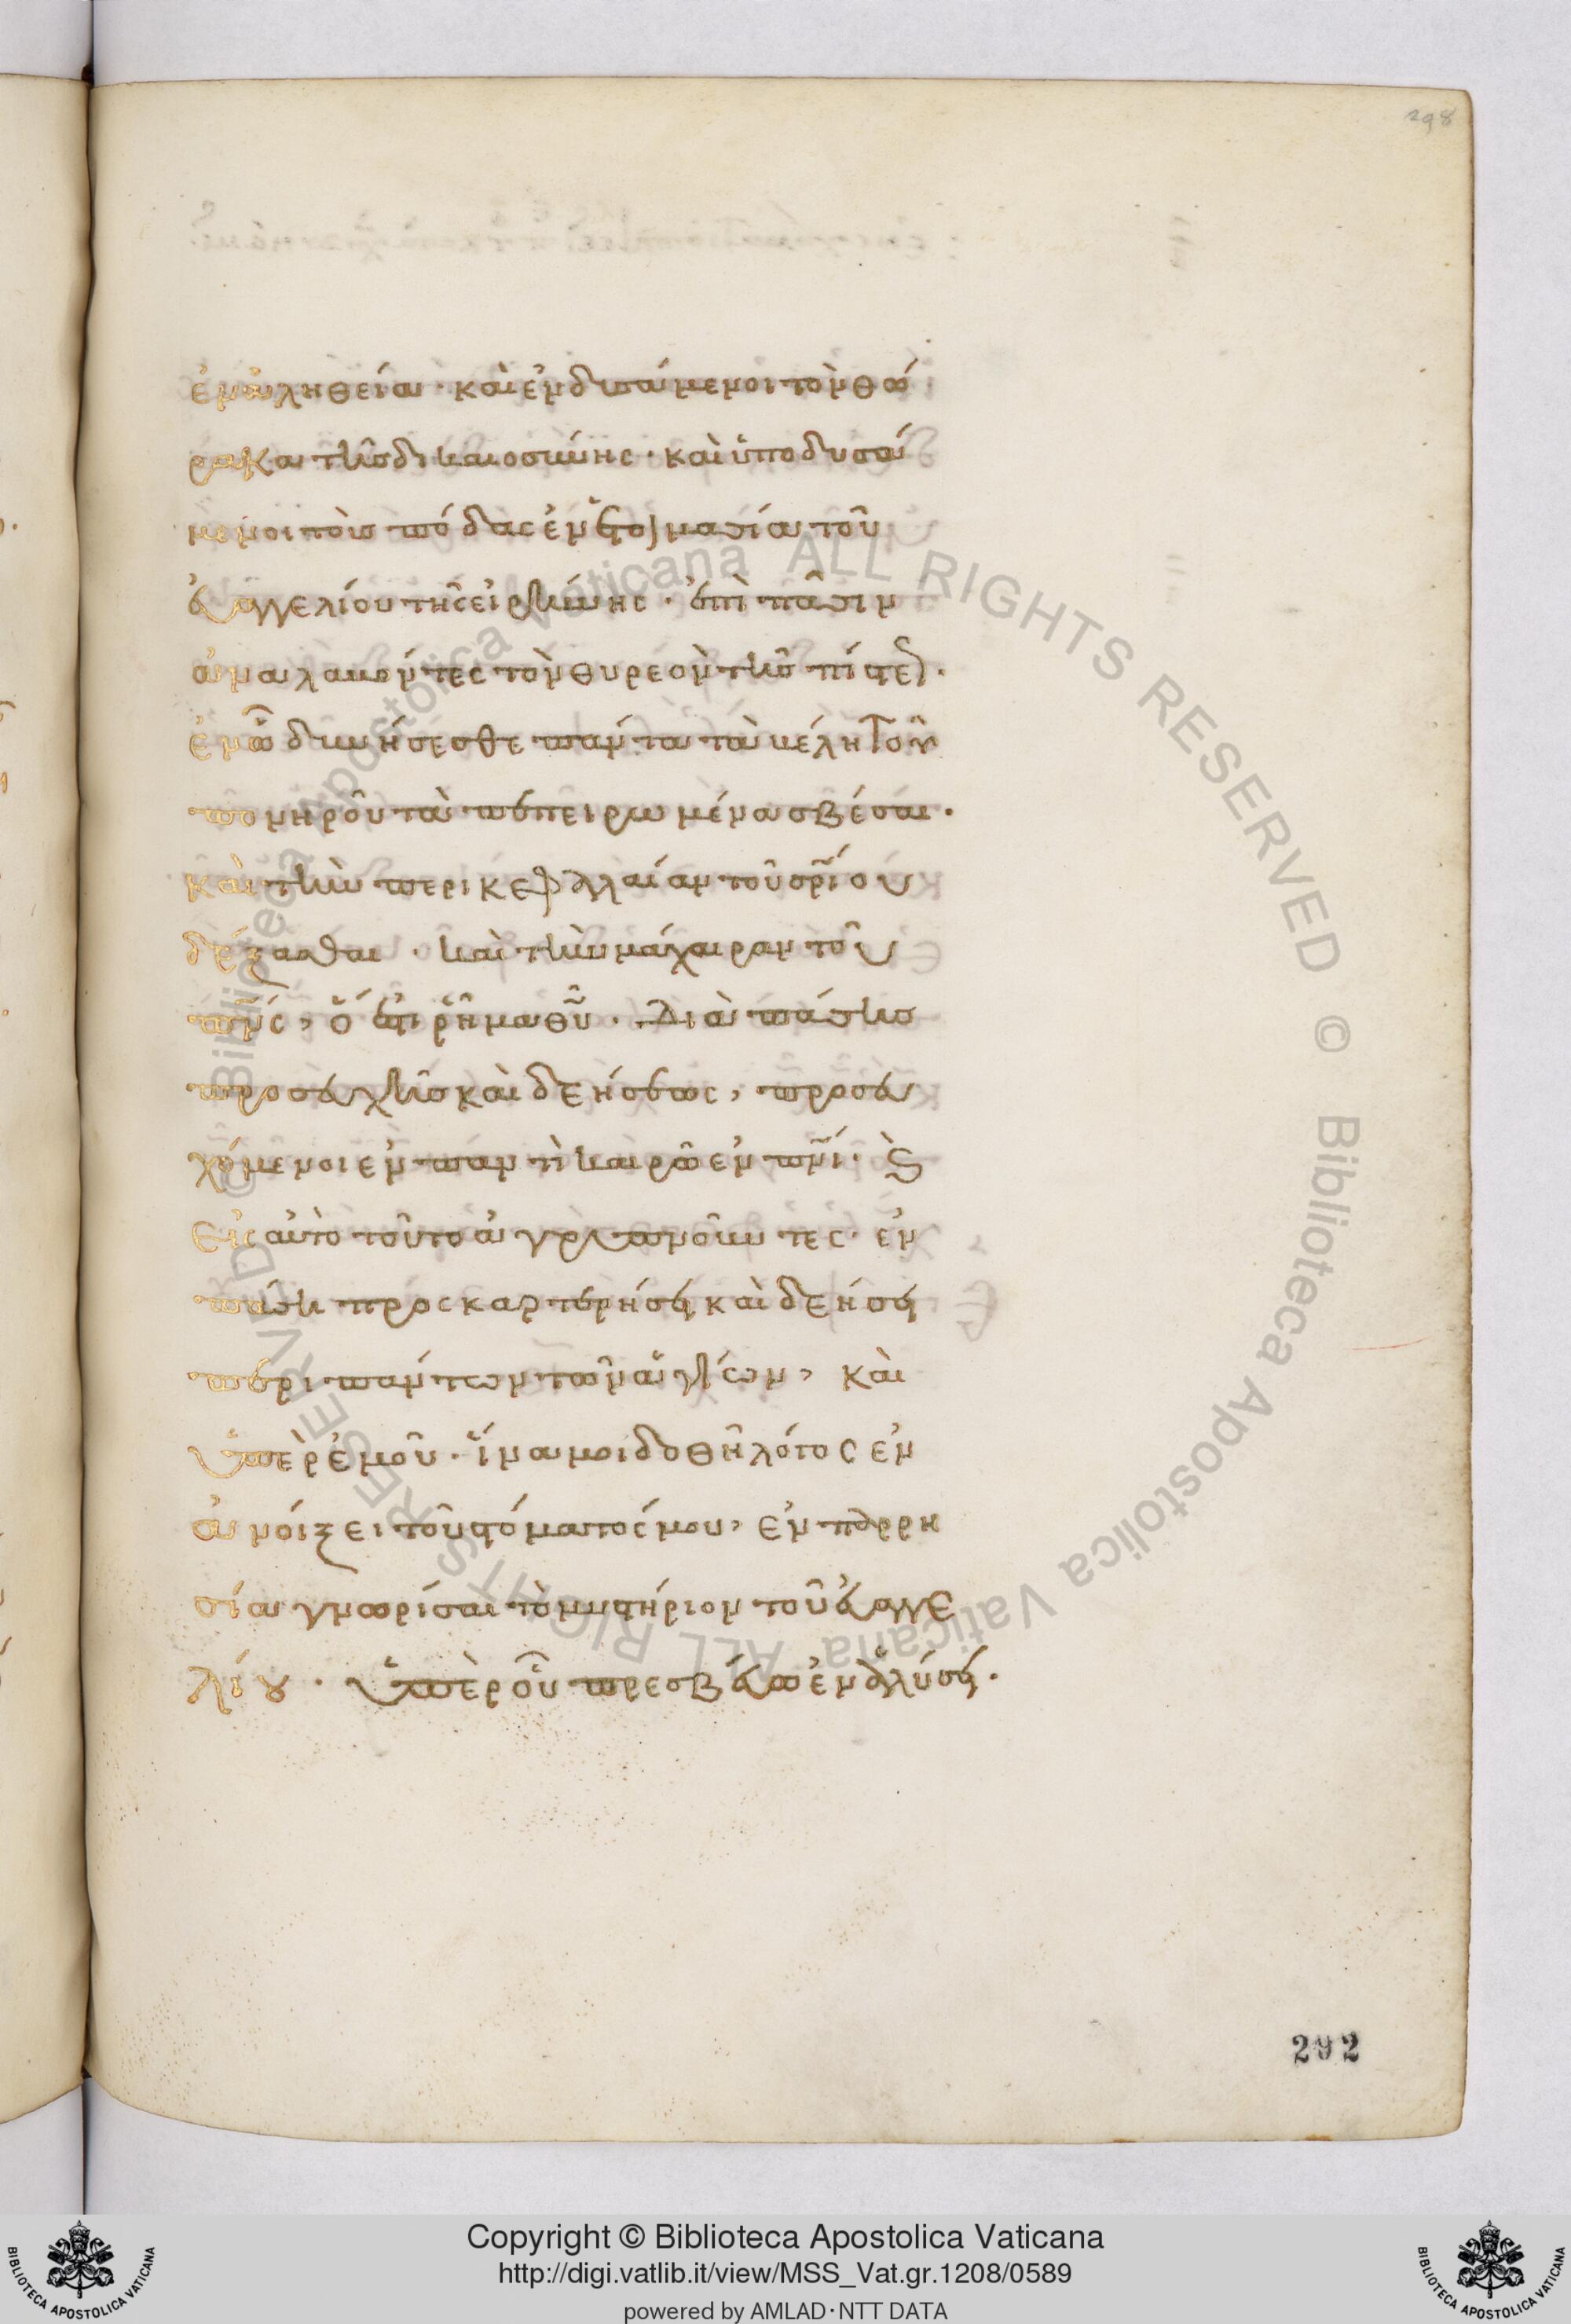 298
ἐν ἀληθεία· καὶ ἐνδυσάμενοι τὸν θώ
ρακα τῆς δικαιοσύνης· καὶ ὑποδυσά
μενοι τοὺς πόδας ἐν ἑτοιμασία τοῦ
εὐαγγελίου τῆς εἰρήνης· ἐπὶ πᾶσιν
ἀναλαβόντες τὸν θυρεὸν τῆς πίστεως·
ἐν ὧ δυνήσεσθε πάντα τὰ βέλη τοῦ
πονηροῦ τὰ πεπειρωμένα σβέσαι·
καὶ τὴν περικεφαλαίαν τοῦ σρίου
δέξασθαι· καὶ τὴν μάχαιραν τοῦ
πνς, ὅ ἐστι ῥῆμα θυ· Διὰ πάσης
προσευχῆς καὶ δεήσεως, προσευ
χόμενοι ἐν παντὶ καιρῶ ἐν πνι· ϗ
εἰς αὐτὸ τοῦτο ἀγρυπνοῦντες· ἐν
πάση προσκαρτερήσει καὶ δεήσει
περι πάντων τῶν ἁγίων, καὶ
ὑπὲρ ἐμοῦ· ἵνα μοι δοθῆ λόγος ἐν
ἀνοίξει τοῦ στόματός μου, ἐν παρρη
σία γνωρίσαι τὸ μυστήριον τοῦ εὐαγγε
λίου· ὑπὲρ οὗ πρεσβεύω ἐν ἁλύσει·
292
© Biblioteca Apostolica Vaticana ALL RIGHTS RESERVED © Biblioteca Apostolica Vaticana ALL RIGHTS RESERVED
BIBLIOTECA APOSTOLICA VATICANA
Copyright © Biblioteca Apostolica Vaticana
http://digi.vatlib.it/view/MSS_Vat.gr.1208/0589
powered by AMLAD·NTT DATA
BIBLIOTECA APOSTOLICA VATICANA